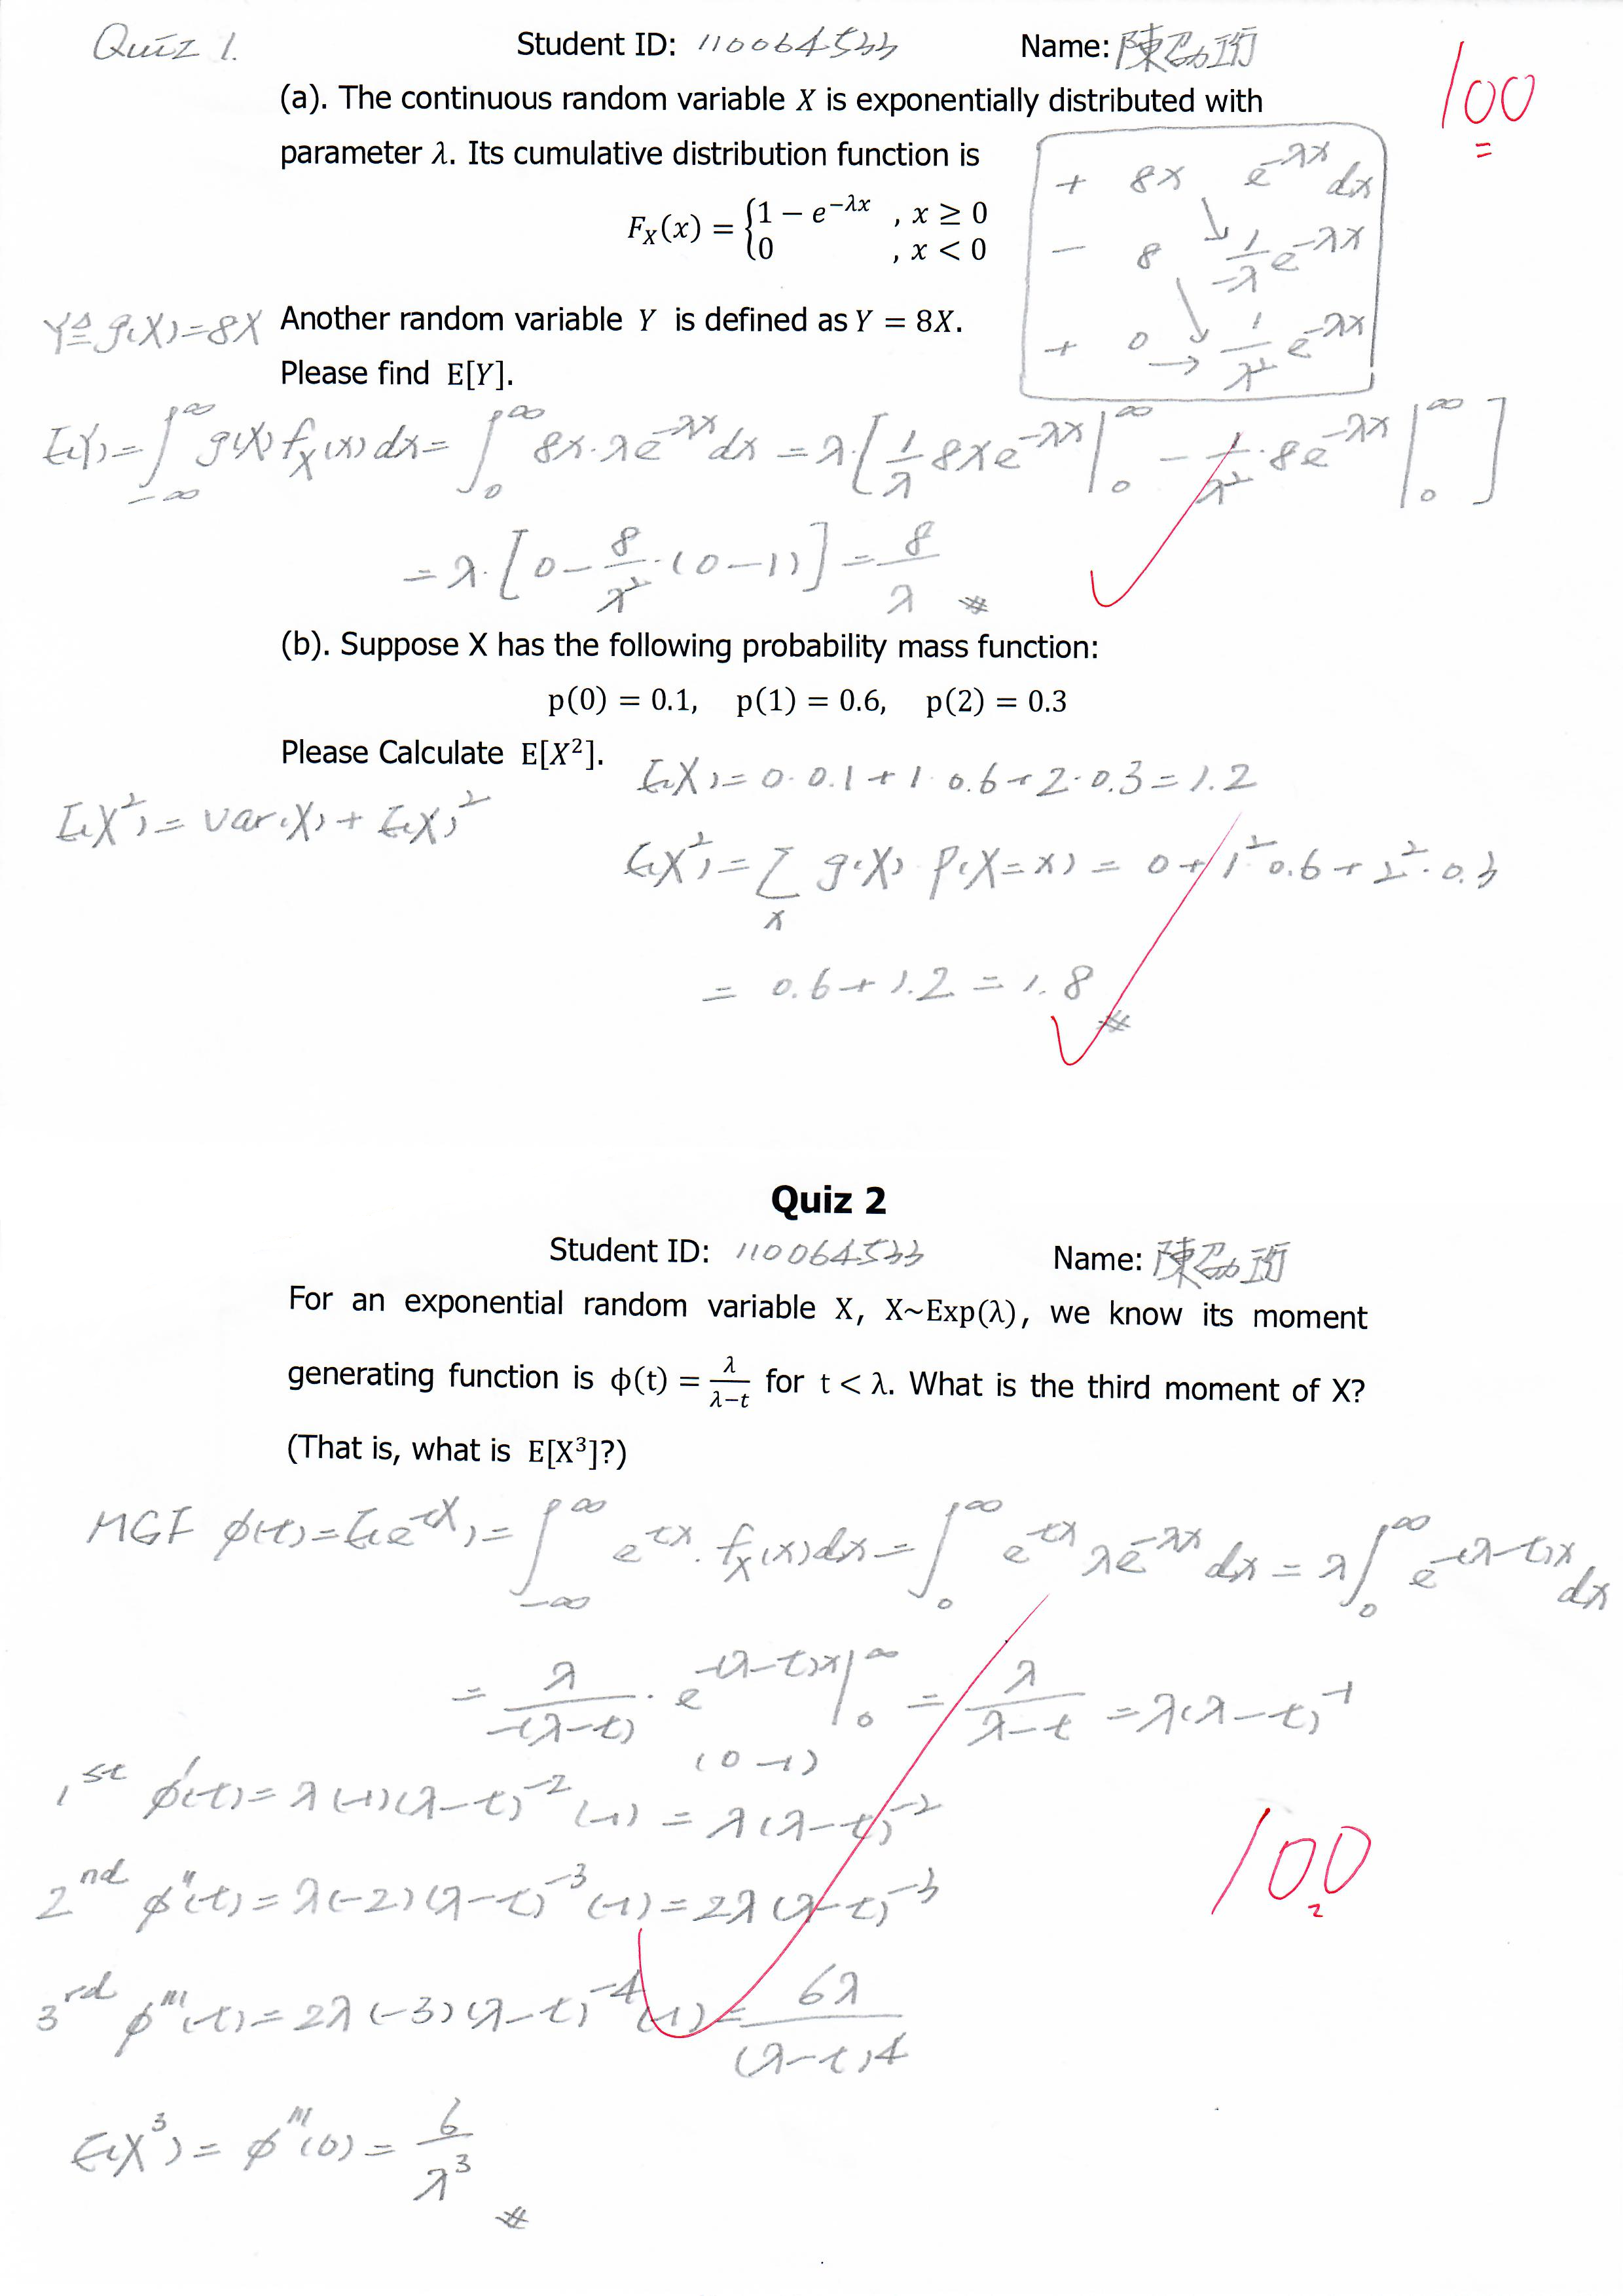 Quiz 1.
Student ID: 110064533 Name: 陳劭珩
100
(a). The continuous random variable X is exponentially distributed with
parameter λ. Its cumulative distribution function is
F_X(x) = {1 − e^{−λx} , x ≥ 0
0 , x < 0
+ 8x e^{-λx} dx
− 8 1/-λ e^{-λx}
+ 0 → 1/λ² e^{-λx}
Y ≜ g(X) = 8X Another random variable Y is defined as Y = 8X.
Please find E[Y].
E(Y) = ∫_{-∞}^{∞} g(X) f_X(x) dx = ∫_0^∞ 8x·λe^{-λx} dx = λ·[1/λ 8xe^{-λx}|_0^∞ − 1/λ²·8e^{-λx}|_0^∞]
= λ·[0 − 8/λ²·(0−1)] = 8/λ #
(b). Suppose X has the following probability mass function:
p(0) = 0.1, p(1) = 0.6, p(2) = 0.3
Please Calculate E[X²].
E(X) = 0·0.1 + 1·0.6 + 2·0.3 = 1.2
E(X²) = Var(X) + E(X)²
E(X²) = Σ_x g(X) P(X=x) = 0 + 1²·0.6 + 2²·0.3
= 0.6 + 1.2 = 1.8 #
Quiz 2
Student ID: 110064533 Name: 陳劭珩
For an exponential random variable X, X~Exp(λ), we know its moment
generating function is ϕ(t) = λ/(λ−t) for t < λ. What is the third moment of X?
(That is, what is E[X³]?)
MGF ϕ(t) = E(e^{tX}) = ∫_{-∞}^{∞} e^{tx}·f_X(x)dx = ∫_0^∞ e^{tx} λe^{-λx} dx = λ∫_0^∞ e^{-(λ-t)x} dx
= λ/-(λ−t) · e^{-(λ-t)x}|_0^∞ = λ/(λ−t) = λ(λ−t)^{-1}
(0−1)
1st ϕ'(t) = λ(-1)(λ−t)^{-2}(-1) = λ(λ−t)^{-2}
2nd ϕ''(t) = λ(-2)(λ−t)^{-3}(-1) = 2λ(λ−t)^{-3}
100
3rd ϕ'''(t) = 2λ(-3)(λ−t)^{-4}(-1) = 6λ/(λ−t)^4
E(X³) = ϕ'''(0) = 6/λ³ #